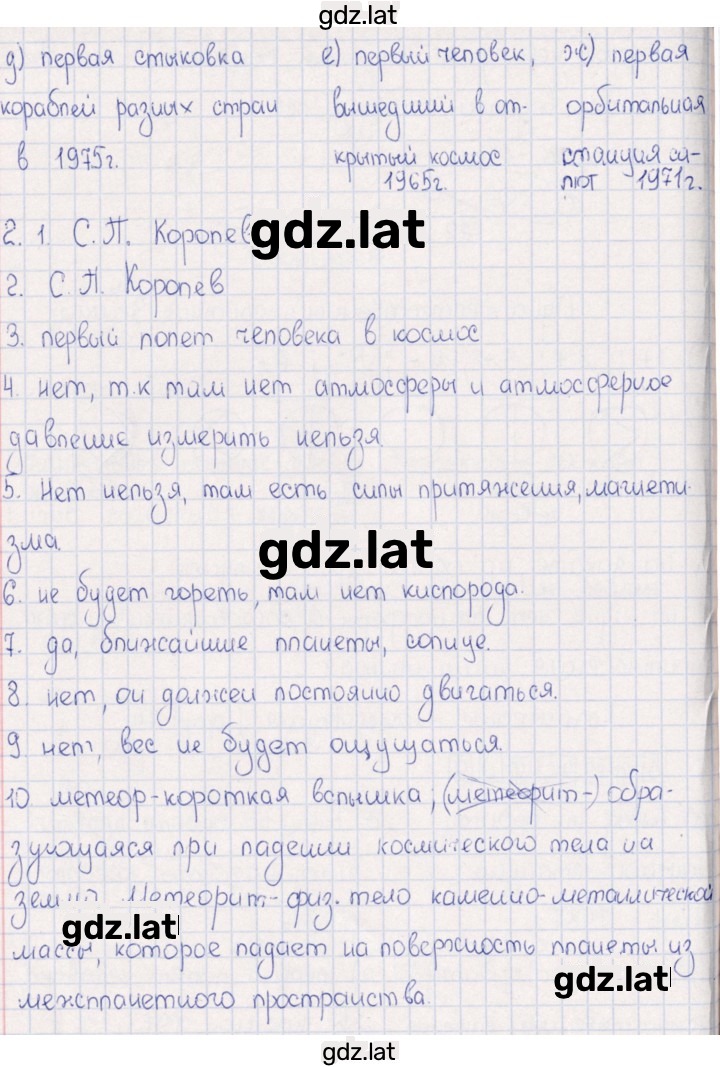 gdz.lat
д) первая стыковка е) первый человек, ж) первая
кораблей разных стран вышедший в от- орбитальная
в 1975г. крытый космос станция са-
1965г. лют 1971г.
2. 1. С.П. Королев gdz.lat
2. С.П. Королев
3. первый полет человека в космос
4. нет, т.к там нет атмосферы и атмосферное
давление измерить нельзя.
5. Нет нельзя, там есть силы притяжения, магнети-
зма. gdz.lat
6. не будет гореть, там нет кислорода.
7. да, ближайшие планеты, солнце.
8. нет, он должен постоянно двигаться.
9 нет, вес не будет ощущаться.
10 метеор-короткая вспышка, (метеорит-) обра-
зующаяся при падении космического тела на
землю. Метеорит-физ. тело каменно-металлической
gdz.lat
массы, которое падает на поверхность планеты из
gdz.lat
межпланетного пространства.
gdz.lat